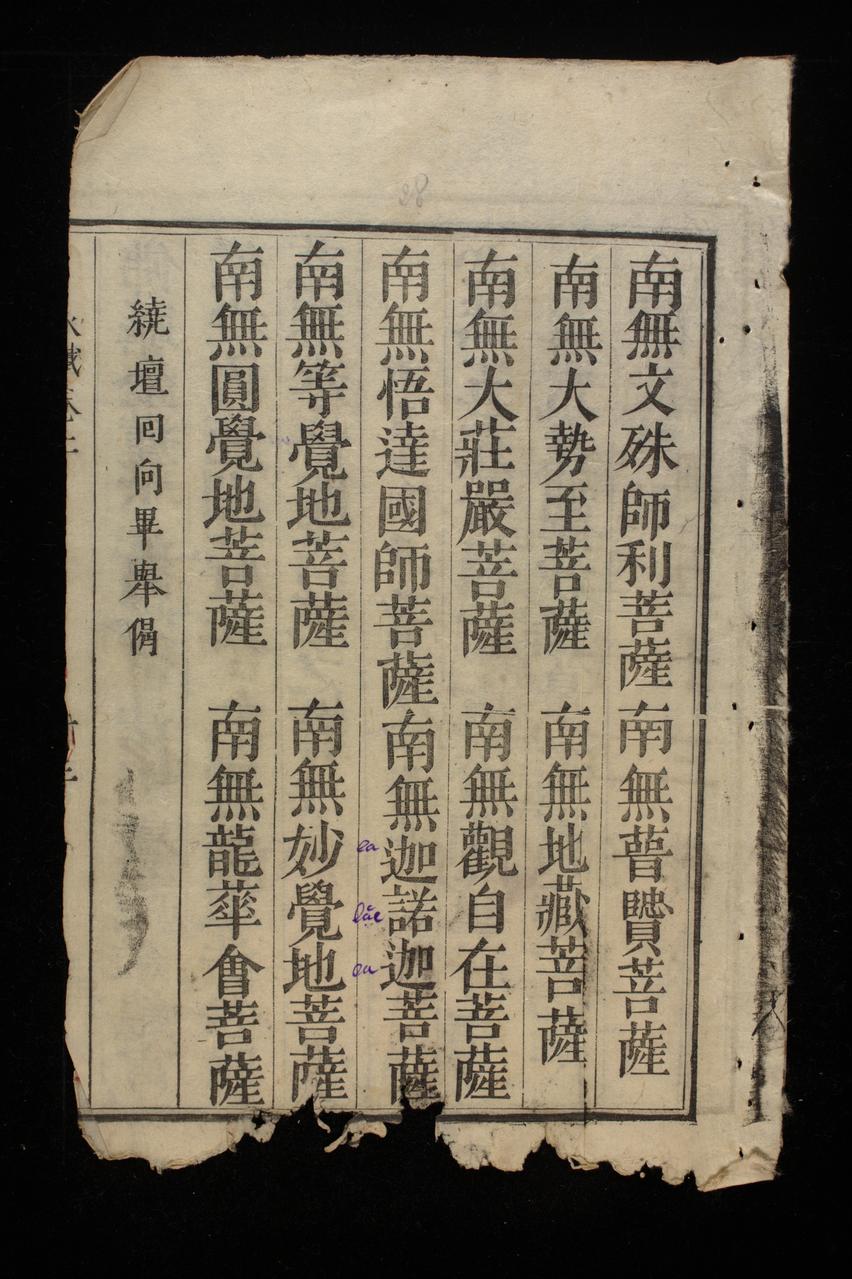 南無文殊師利菩薩 南無普賢菩薩
南無大勢至菩薩 南無地藏菩薩
南無大莊嚴菩薩 南無觀自在菩薩
南無悟達國師菩薩 南無迦諾迦菩薩
ca
lặc
ca
南無等覺地菩薩 南無妙覺地菩薩
南無圓覺地菩薩 南無龍華會菩薩
繞壇回向畢舉偈